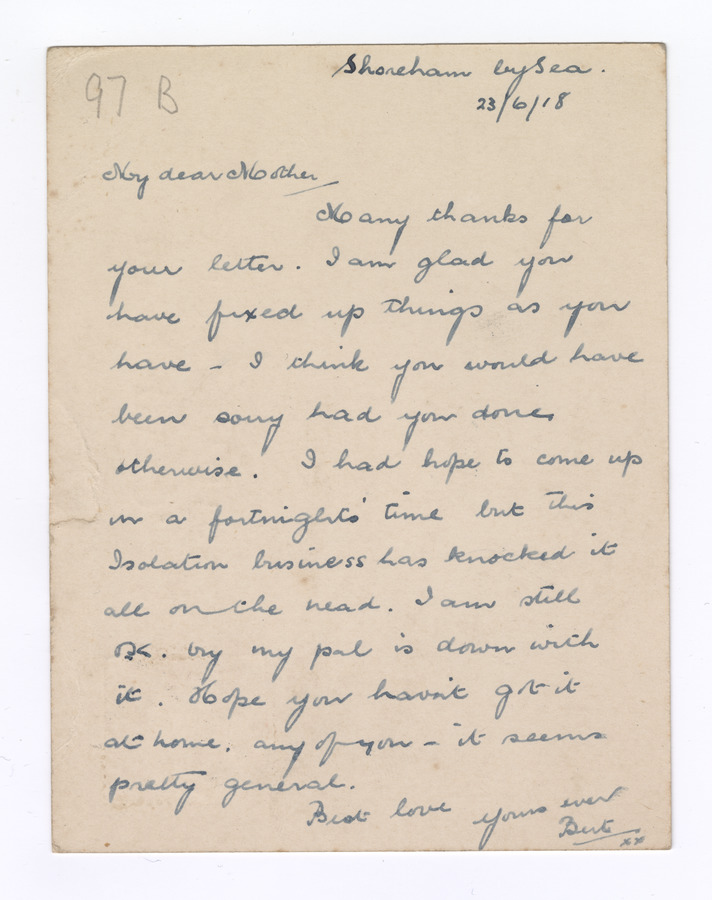 97 B
Shoreham by Sea.
23/6/18
My dear Mother
Many thanks for
your letter. I am glad you
have fixed up things as you
have - I think you would have
been sorry had you done
otherwise. I had hope to come up
in a fortnights' time but this
Isolation business has knocked it
all on the head. I am still
OK. my pal is down with
it. Hope you havn't got it
at home, any of you - it seems
pretty general.
Best love yours ever
Bert
xx